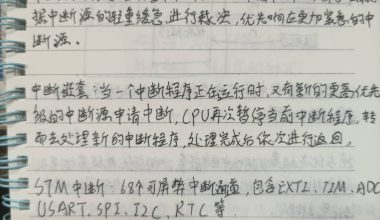 据中断源的轻重缓急进行裁决,优先响应更加紧急的中
断源。
中断嵌套:当一个中断程序正在运行时,又有新的更高优先
级的中断源申请中断,CPU再次暂停当前中断程序,转
而去处理新的中断程序,处理完成后依次进行返回。
STM中断:68个可屏蔽中断通道,包含EXTI、TIM、ADC
USART、SPI、I2C、RTC等.